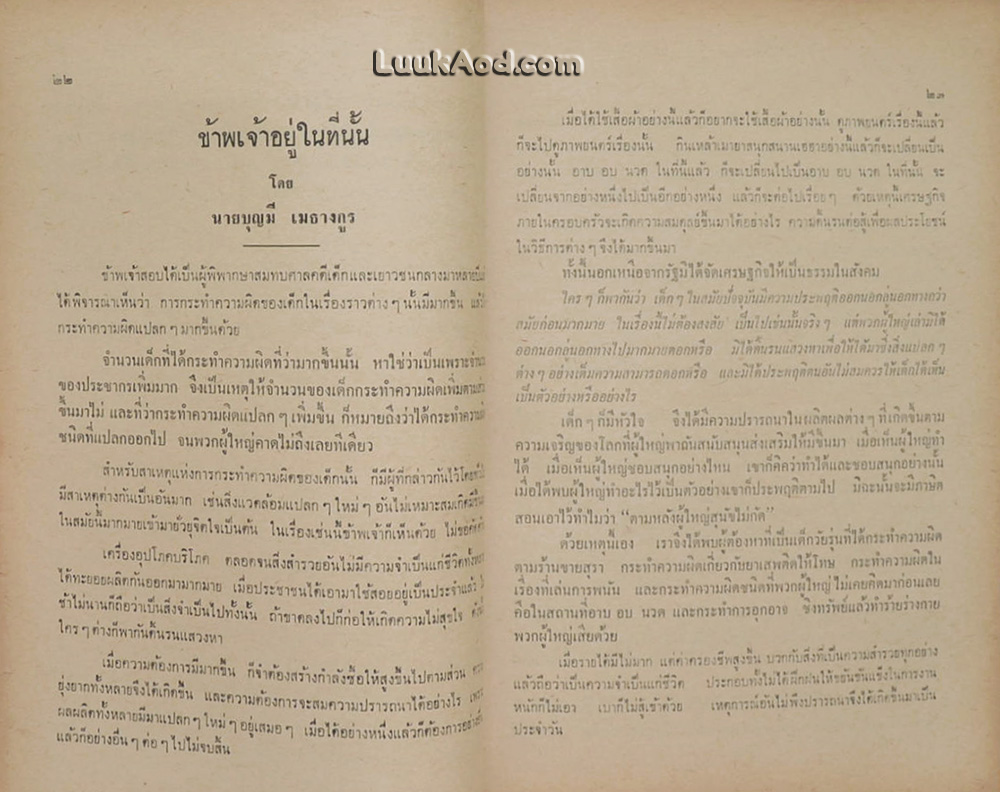 LuukAod.com
๒๒
ข้าพเจ้าอยู่ในที่นั้น
โดย
นายบุญมี เมธางกูร
ข้าพเจ้าสอบได้เป็นผู้พิพากษาสมทบศาลคดีเด็กและเยาวชนกลางมาหลายปี
ได้พิจารณาเห็นว่า การกระทำความผิดของเด็กในเรื่องราวต่าง ๆ นั้นมีมากขึ้น
กระทำความผิดแปลก ๆ มากขึ้นด้วย
จำนวนเด็กที่ได้กระทำความผิดที่ว่ามากขึ้นนั้น หาใช่ว่าเป็นเพราะจำนวน
ของประชากรเพิ่มมาก จึงเป็นเหตุให้จำนวนของเด็กกระทำความผิดเพิ่มตาม
ขึ้นมาไม่ และที่ว่ากระทำความผิดแปลก ๆ เพิ่มขึ้น ก็หมายถึงว่าได้กระทำความผิด
ชนิดที่แปลกออกไป จนพวกผู้ใหญ่คาดไม่ถึงเลยทีเดียว
สำหรับสาเหตุแห่งการกระทำความผิดของเด็กนั้น ก็มีผู้ที่กล่าวกันไว้โดย
มีสาเหตุต่างกันเป็นอันมาก เช่นสิ่งแวดล้อมแปลก ๆ ใหม่ ๆ อันไม่เหมาะสมเกิดมีขึ้น
ในสมัยนี้มากมายเข้ามายั่วยุจิตใจเป็นต้น ในเรื่องเช่นนี้ข้าพเจ้าก็เห็นด้วย ไม่ขอคัดค้าน
เครื่องอุปโภคบริโภค ตลอดจนสิ่งสำรวยอันไม่มีความจำเป็นแก่ชีวิตทั้งหลาย
ได้ทะยอยผลิตกันออกมามากมาย เมื่อประชาชนได้เอามาใช้สอยอยู่เป็นประจำแล้ว
ช้าไม่นานก็ถือว่าเป็นสิ่งจำเป็นไปทั้งนั้น ถ้าขาดลงไปก็ก่อให้เกิดความไม่สุขใจ
ใคร ๆ ต่างก็พากันดิ้นรนแสวงหา
เมื่อความต้องการมีมากขึ้น ก็จำต้องสร้างกำลังซื้อให้สูงขึ้นไปตามส่วน ความ
ยุ่งยากทั้งหลายจึงได้เกิดขึ้น และความต้องการจะสมความปรารถนาได้อย่างไร เพราะ
ผลผลิตทั้งหลายมีมาแปลก ๆ ใหม่ ๆ อยู่เสมอ ๆ เมื่อได้อย่างหนึ่งแล้วก็ต้องการอย่างอื่น
แล้วก็อย่างอื่น ๆ ต่อ ๆ ไปไม่จบสิ้น
๒๓
เมื่อได้ใช้เสื้อผ้าอย่างนี้แล้วก็อยากจะใช้เสื้อผ้าอย่างนั้น ดูภาพยนตร์เรื่องนี้แล้ว
ก็จะไปดูภาพยนตร์เรื่องนั้น กินเหล้าเมายาสนุกสนานเฮฮาอย่างนี้แล้วก็จะเปลี่ยนเป็น
อย่างนั้น อาบ อบ นวด ในที่นี้แล้ว ก็จะเปลี่ยนไปเป็นอาบ อบ นวด ในที่นั้น จะ
เปลี่ยนจากอย่างหนึ่งไปเป็นอีกอย่างหนึ่ง แล้วก็จะต่อไปเรื่อย ๆ ด้วยเหตุนี้เศรษฐกิจ
ภายในครอบครัวจะเกิดความสมดุลย์ขึ้นมาได้อย่างไร ความดิ้นรนต่อสู้เพื่อผลประโยชน์
ในวิธีการต่าง ๆ จึงได้มากขึ้นมา
ทั้งนี้นอกเหนือจากรัฐมิได้จัดเศรษฐกิจให้เป็นธรรมในสังคม
ใคร ๆ ก็พากันว่า เด็ก ๆ ในสมัยปัจจุบันมีความประพฤติออกนอกลู่นอกทางกว่า
สมัยก่อนมากมาย ในเรื่องนี้ไม่ต้องสงสัย เป็นไปเช่นนั้นจริง ๆ แต่พวกผู้ใหญ่เล่ามิได้
ออกนอกลู่นอกทางไปมากมายดอกหรือ มิได้ดิ้นรนแสวงหาเพื่อให้ได้มาซึ่งสิ่งแปลก ๆ
ต่าง ๆ อย่างเต็มความสามารถดอกหรือ และมิได้ประพฤติตนอันไม่สมควรให้เด็กได้เห็น
เป็นตัวอย่างหรืออย่างไร
เด็ก ๆ ก็มีหัวใจ จึงได้มีความปรารถนาในผลิตผลต่าง ๆ ที่เกิดขึ้นตาม
ความเจริญของโลกที่ผู้ใหญ่พากันสนับสนุนส่งเสริมให้มีขึ้นมา เมื่อเห็นผู้ใหญ่ทำ
ได้ เมื่อเห็นผู้ใหญ่ชอบสนุกอย่างไหน เขาก็คิดว่าทำได้และชอบสนุกอย่างนั้น
เมื่อได้พบผู้ใหญ่ทำอะไรไว้เป็นตัวอย่างเขาก็ประพฤติตามไป มิฉะนั้นจะมีภาษิต
สอนเอาไว้ทำไมว่า “ตามหลังผู้ใหญ่สุนัขไม่กัด”
ด้วยเหตุนี้เอง เราจึงได้พบผู้ต้องหาที่เป็นเด็กวัยรุ่นที่ได้กระทำความผิด
ตามร้านขายสุรา กระทำความผิดเกี่ยวกับยาเสพติดให้โทษ กระทำความผิดใน
เรื่องที่เล่นการพนัน และกระทำความผิดชนิดที่พวกผู้ใหญ่ไม่เคยคิดมาก่อนเลย
คือในสถานที่อาบ อบ นวด และกระทำการอุกอาจ ชิงทรัพย์แล้วทำร้ายร่างกาย
พวกผู้ใหญ่เสียด้วย
เมื่อรายได้มีไม่มาก แต่ค่าครองชีพสูงขึ้น บวกกับสิ่งที่เป็นความสำรวยทุกอย่าง
แล้วถือว่าเป็นความจำเป็นแก่ชีวิต ประกอบทั้งไม่ได้ฝึกฝนให้ขยันขันแข็งในการงาน
หนักก็ไม่เอา เบาก็ไม่สู้เข้าด้วย เหตุการณ์อันไม่พึงปรารถนาจึงได้เกิดขึ้นมาเป็น
ประจำวัน